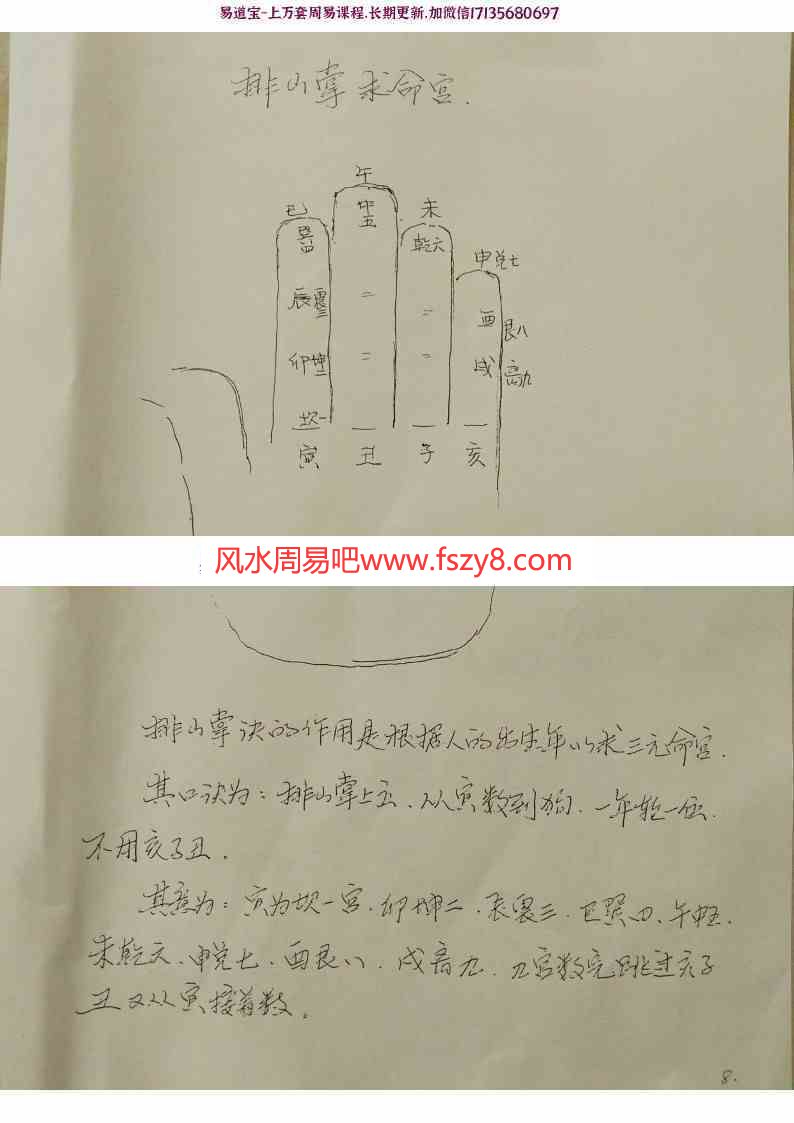 易道宝-上万套周易课程.长期更新,加微信17135680697
排山掌求命宫.
午
巳 中五 未
巽四 乾六 申兑七
辰震三 = = 酉 艮八
卯坤二 = = 戌 离九
坎一
寅 丑 子 亥
风水周易吧www.fszy8.com
排山掌诀的作用是根据人的出生年以求三元命宫.
其口诀为:排山掌上立、从寅数到狗、一年轮一位.
不用亥子丑.
其意为:寅为坎一宫、卯坤二、辰震三、巳巽四、午中五、
未乾六、申兑七、酉艮八、戌离九、九宫数完跳过亥子
丑又从寅接着数。
8.